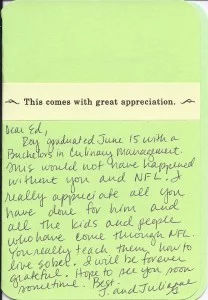 This comes with great appreciation.
Dear Ed,
Roy graduated June 15 with a
Bachelors in Culinary Management.
This would not have happened
without you and NFL. I
really appreciate all you
have done for him and
all the kids and people
who have come through NFL.
You really teach them how to
live sober. I will be forever
grateful. Hope to see you soon
sometime. Best,
J. and Julienne